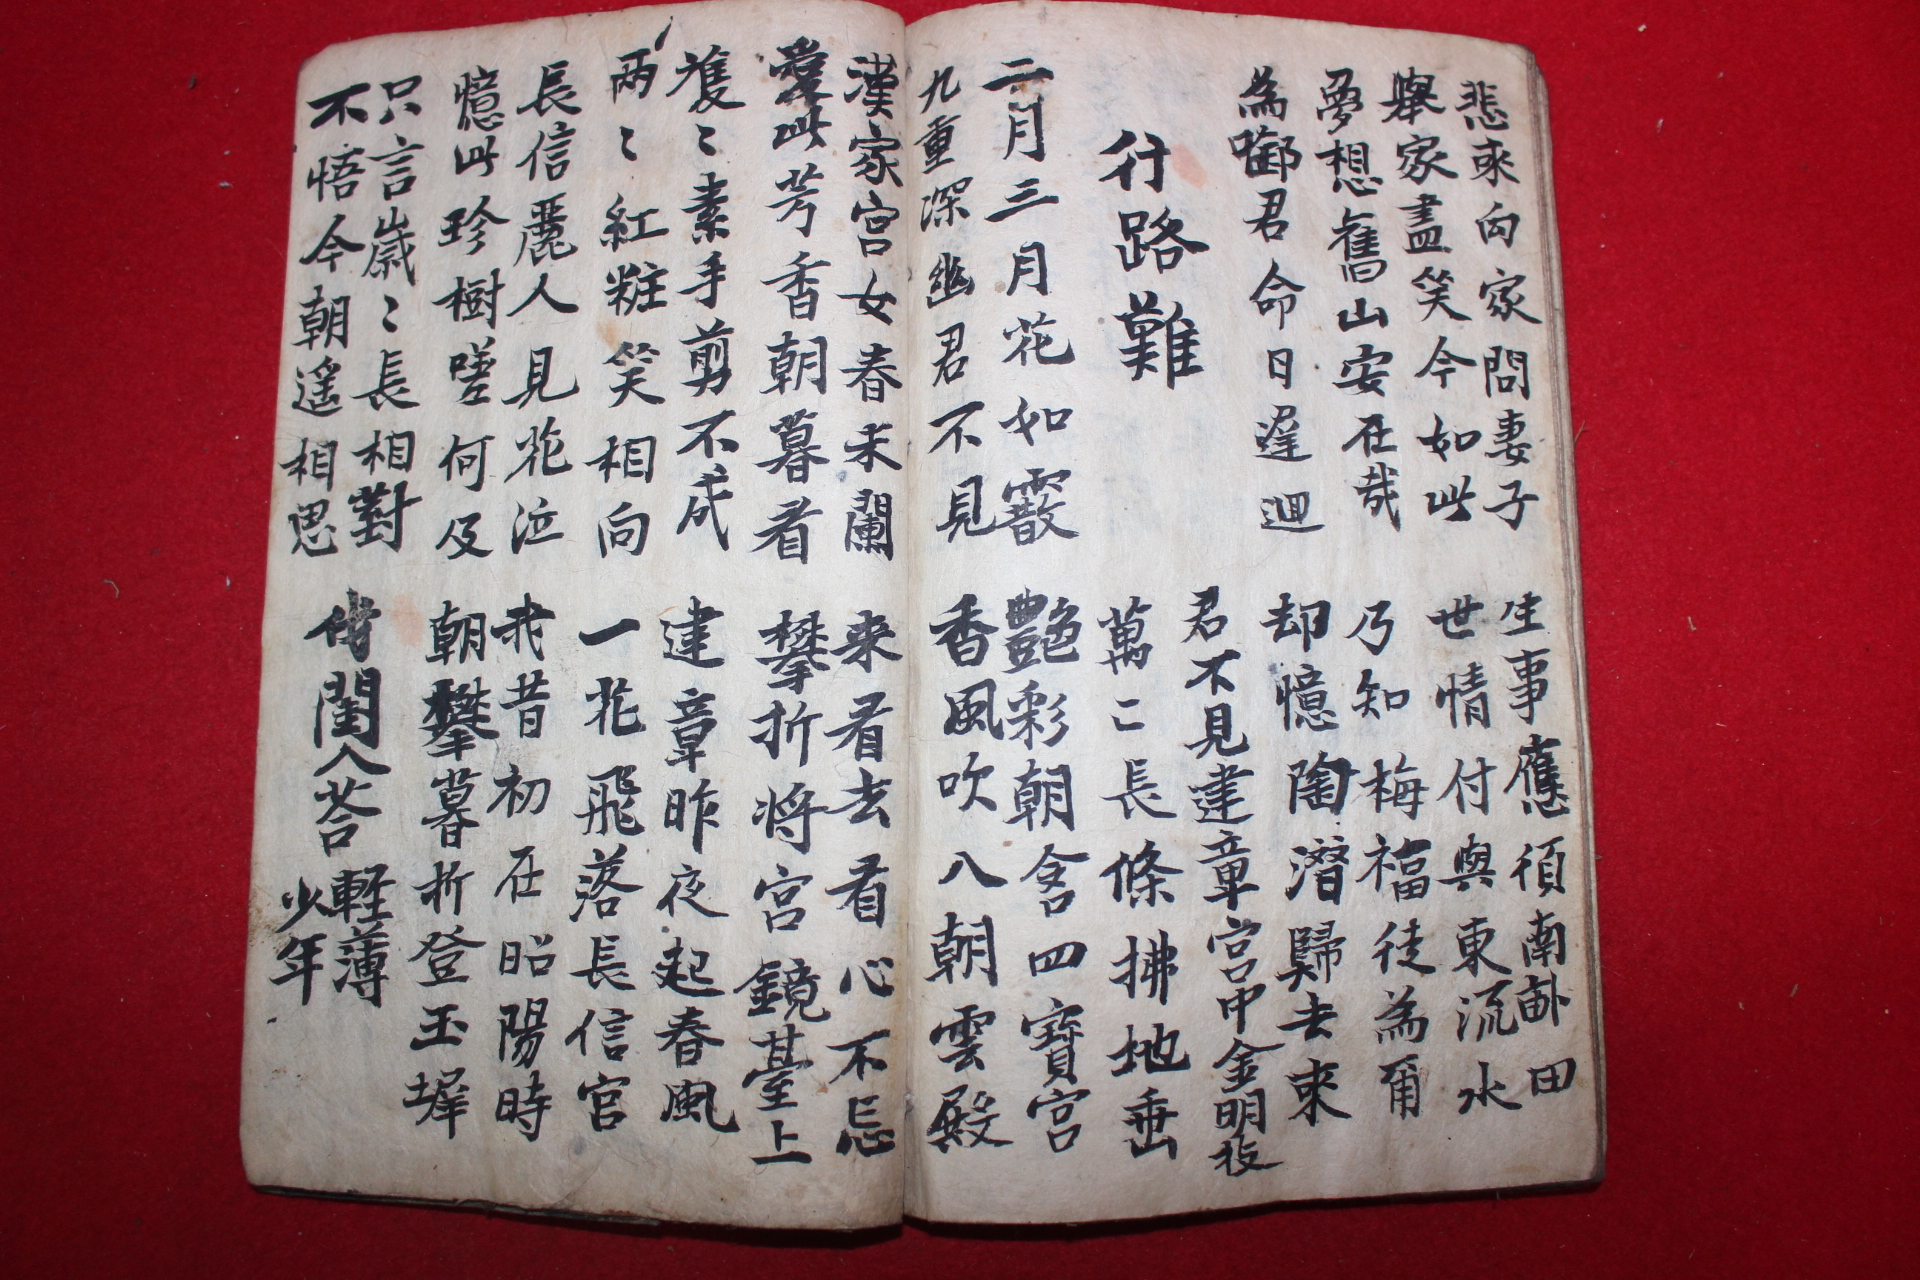 悲來向家問妻子 生事應須南畝田
舉家盡笑今如此 世情付與東流水
夢想舊山安在哉 乃知梅福徒為爾
為啣君命日遲迴 却憶陶潛歸去來
行路難
君不見建章宮中金明枝
萬〻長條拂地垂
二月三月花如霰 艷彩朝含四寶宮
九重深幽君不見 香風吹入朝雲殿
漢家宮女春未闌 来看去看心不忘
愛此芳香朝暮看 攀折將宮鏡臺上
雙〻素手剪不成 建章昨夜起春風
兩〻紅粧笑相向 一花飛落長信宮
長信麗人見花泣 我昔初在昭陽時
憶此珍樹嗟何及 朝攀暮折登玉墀
只言歲〻長相對
不悟今朝遥相思
閨人荅輕薄
少年